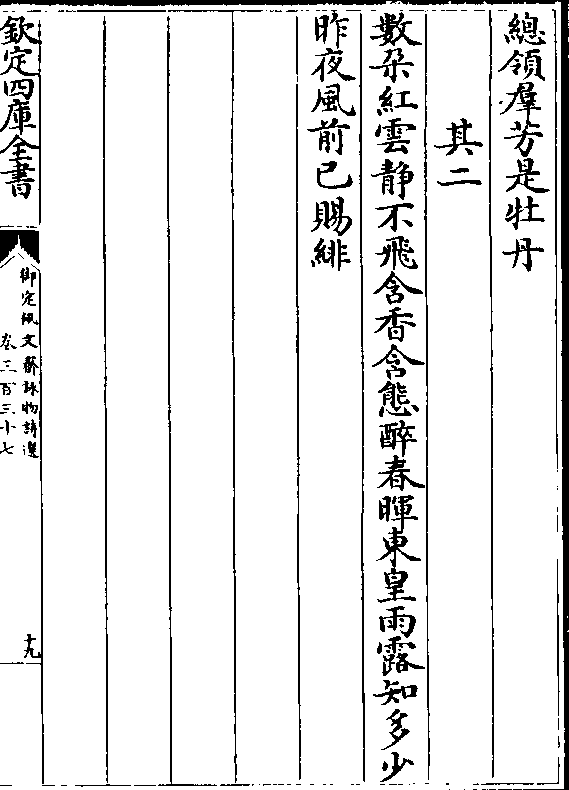 總領羣芳是牡丹
其二
數朶紅雲静不飛含香含態醉春暉東皇雨露知多少
昨夜風前已賜緋
欽定四庫全書
御定佩文齋詠物詩選
卷三百三十七
十九